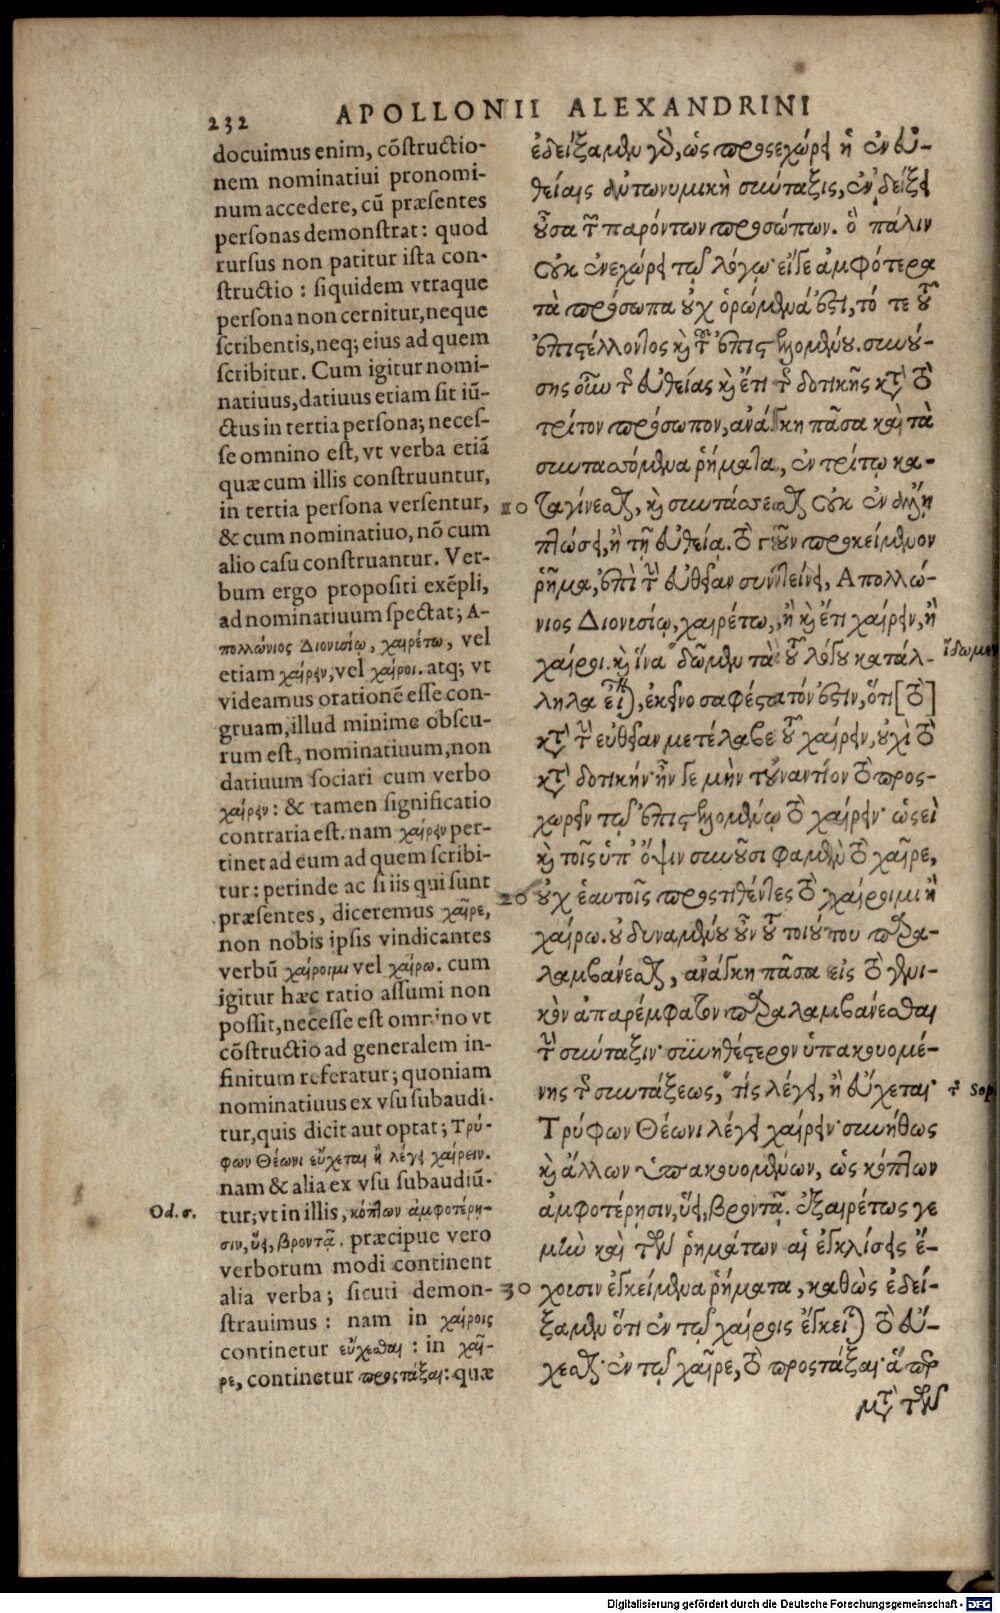 232 APOLLONII ALEXANDRINI
docuimus enim, cõstructio-
nem nominatiui pronomi-
num accedere, cũ præsentes
personas demonstrat: quod
rursus non patitur ista con-
structio: siquidem vtraque
persona non cernitur, neque
scribentis, neq; eius ad quem
scribitur. Cum igitur nomi-
natiuus, datiuus etiam sit iũ-
ctus in tertia persona; neces-
se omnino est, vt verba etiã
quæ cum illis construuntur,
in tertia persona versentur,
& cum nominatiuo, nõ cum
alio casu construantur. Ver-
bum ergo propositi exẽpli,
ad nominatiuum spectat; Ἀ-
πολλώνιος Διονυσίῳ, χαιρέτω, vel
etiam χαίρειν, vel χαίροι. atq; vt
videamus orationẽ esse con-
gruam, illud minime obscu-
rum est, nominatiuum, non
datiuum sociari cum verbo
χαίρειν: & tamen significatio
contraria est. nam χαίρειν per-
tinet ad eum ad quem scribi-
tur: perinde ac si iis qui sunt
præsentes, diceremus χαῖρε,
non nobis ipsis vindicantes
verbũ χαίροιμι vel χαίρω. cum
igitur hæc ratio assumi non
possit, necesse est omnino vt
cõstructio ad generalem in-
finitum referatur; quoniam
nominatiuus ex vsu subaudi-
tur, quis dicit aut optat; Τρύ-
φων Θέωνι εὔχεται ἢ λέγει χαίρειν.
nam & alia ex vsu subaudiũ-
Od. σ. tur; vt in illis, κόπτων ἀμφοτέρῃ-
σιν, ὕει, βροντᾷ. præcipue vero
verborum modi continent
alia verba; sicuti demon-
strauimus: nam in χαίροις
continetur εὔχεσθαι: in χαῖ-
ρε, continetur προστάξαι: quæ
ἐδείξαμεν γὰρ, ὡς προσεχώρει ἡ ἐν εὐ-
θείαις ἀντωνυμικὴ σύνταξις, ἐν δείξει
οὖσα τῶν παρόντων προσώπων. ὃ πάλιν
οὐκ ἐνεχώρει τῷ λόγῳ· εἴγε ἀμφότερα
τὰ πρόσωπα οὐχ ὁρώμενά ἐστι, τό τε τοῦ
ἐπιστέλλοντος καὶ τοῦ ἐπιστελλομένου. συνού-
σης οὖν τῆς εὐθείας καὶ ἔτι τῆς δοτικῆς κατὰ τὸ
τρίτον πρόσωπον, ἀνάγκη πᾶσα καὶ τὰ
συντασσόμενα ῥήματα, ἐν τρίτῳ κα-
10 ταγίνεσθαι, καὶ συντάσσεσθαι οὐκ ἐν ἄλλῃ
πτώσει, ἢ τῇ εὐθείᾳ. τὸ γοῦν προκείμενον
ῥῆμα, ἐπὶ τὴν εὐθεῖαν συντείνει, Ἀπολλώ-
νιος Διονυσίῳ, χαιρέτω, ἢ καὶ ἔτι χαίρειν, ἢ
χαίροι. καὶ ἵνα δῶμεν τὰ τοῦ λόγου κατάλ- ἴδωμεν
ληλα εἶναι, ἐκεῖνο σαφέστατόν ἐστιν, ὅτι [τὸ]
κατὰ τὴν εὐθεῖαν μετέλαβε τοῦ χαίρειν, οὐχὶ τὸ
κατὰ δοτικήν· ἦν δὲ μὴν τοὐναντίον τὸ προσ-
χωρεῖν τῷ ἐπιστελλομένῳ τὸ χαίρειν· ὡσεὶ
καὶ τοῖς ὑπ' ὄψιν συνοῦσι φαμὲν τὸ χαῖρε,
20 οὐχ ἑαυτοῖς προστιθέντες τὸ χαίροιμι ἢ
χαίρω. οὐ δυναμένου οὖν τοῦ τοιούτου παρα-
λαμβάνεσθαι, ἀνάγκη πᾶσα εἰς τὸ γενι-
κὸν ἀπαρέμφατον παραλαμβάνεσθαι
τὴν σύνταξιν· συνηθέστερον ὑπακουομέ-
νης τῆς συντάξεως, τίς λέγει, ἢ εὔχεται·
Τρύφων Θέωνι λέγει χαίρειν· συνήθως
καὶ ἄλλων ὑπακουομένων, ὡς κόπτων
ἀμφοτέρῃσιν, ὕει, βροντᾷ. ἐξαιρέτως γε
μὴν καὶ τῶν ῥημάτων αἱ ἐγκλίσεις ἔ-
30 χουσιν ἐγκείμενα ῥήματα, καθὼς ἐδεί-
ξαμεν ὅτι ἐν τῷ χαίροις ἔγκειται τὸ εὔ-
χεσθαι· ἐν τῷ χαῖρε, τὸ προστάξαι· ἅπερ
μετὰ τῶν
Digitalisierung gefördert durch die Deutsche Forschungsgemeinschaft - DFG